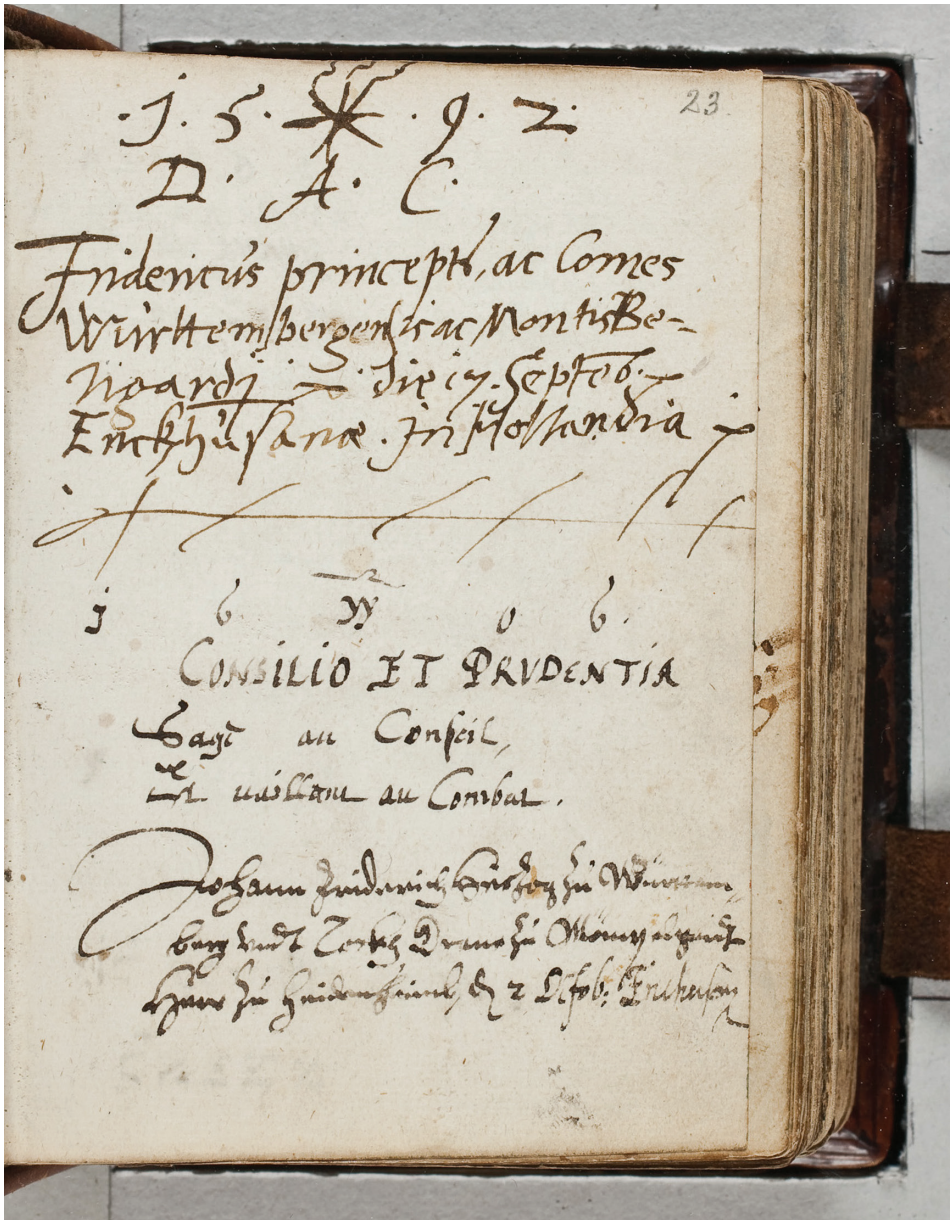 23.
.1. 5. .9. 2.
D. A. C.
Fridericus princeps, ac Comes
Württembergensis ac MontisBe-
ligardj die 17. Septeb.
Enckhusanæ. In Hollandia
1 6 W 0 6.
CONSILIO ET PRVDENTIA
Sage au Conseil,
Et vaillant au Combat.
Johann Friderich Hertzog zu Würtem-
berg vndt Teckh Graue zu Mömpelgardt
Herr zu Heidenheimb, 2 Octob: Enchusen